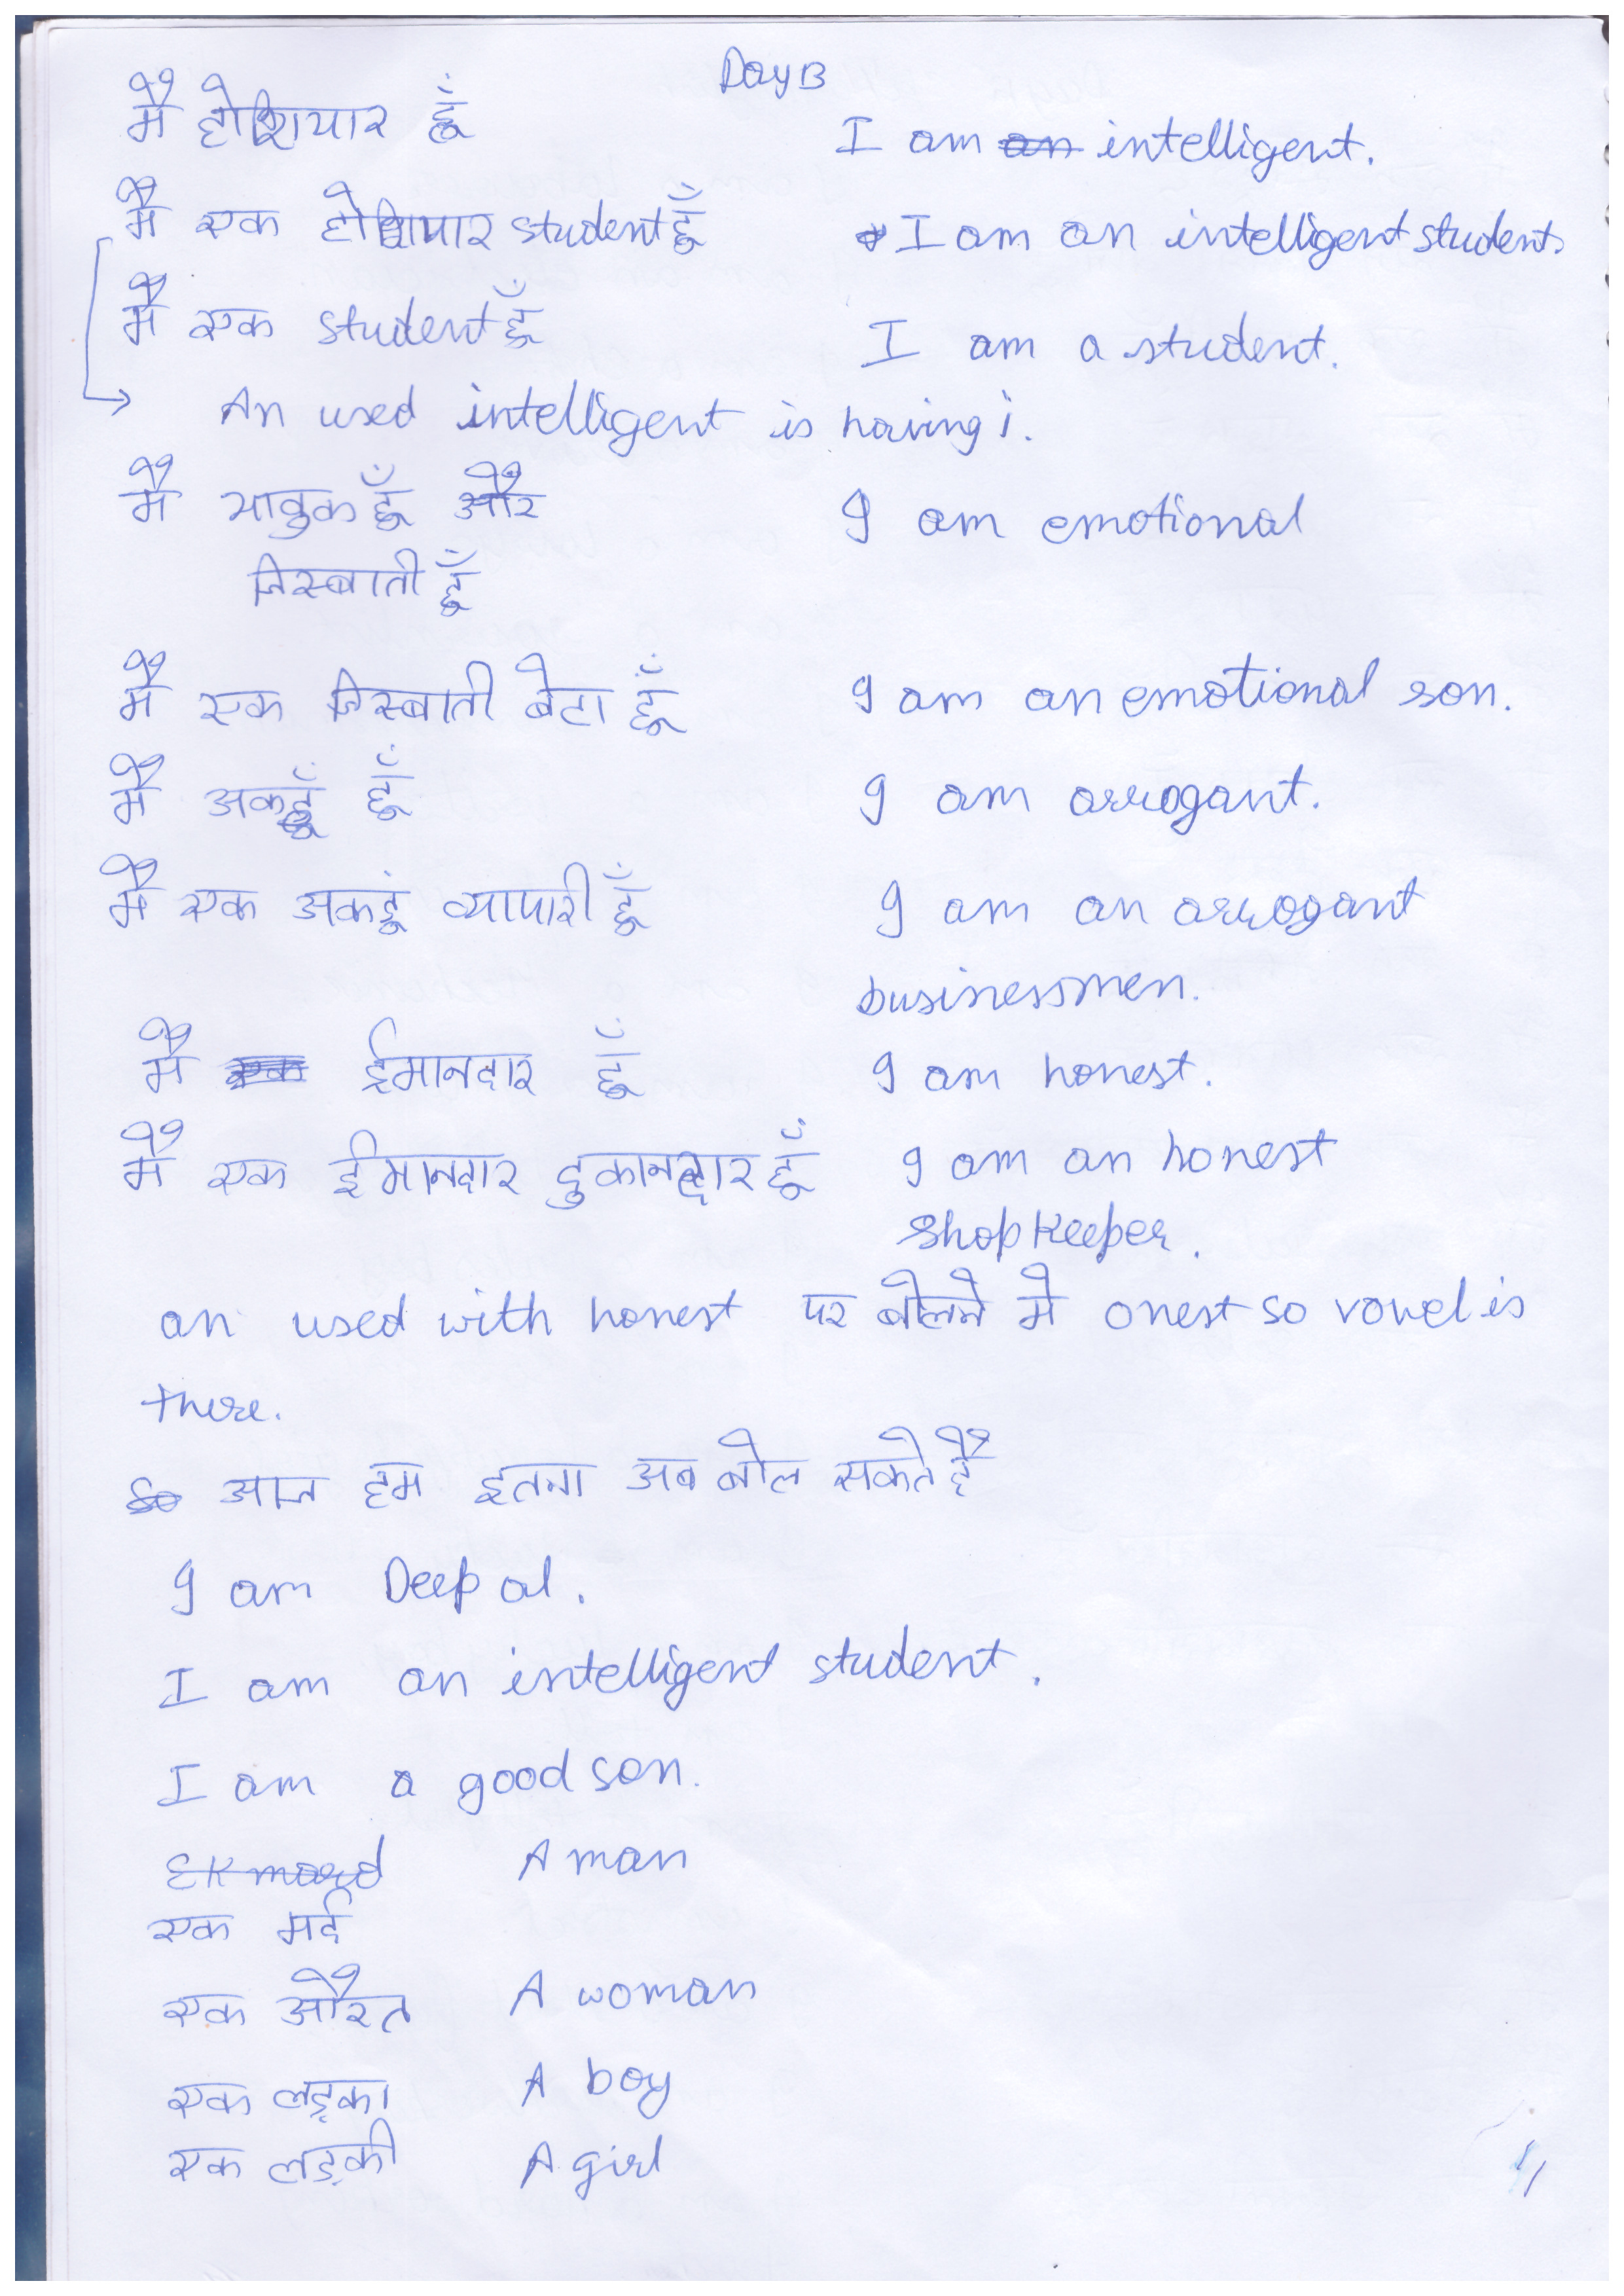 Day 13
मै होशियार हूँ I am an intelligent.
मै एक होशियार student हूँ I am an intelligent student.
मै एक student हूँ I am a student.
An used intelligent is having i.
मै भावुक हूँ और I am emotional
जिस्बाती हूँ
मै एक जिस्बाती बेटा हूँ I am an emotional son.
मै अकड़ूँ हूँ I am arrogant.
मै एक अकड़ूं व्यापारी हूँ I am an arrogant
businessmen.
मै एक ईमानदार हूँ I am honest.
मै एक ईमानदार दुकानदार हूँ I am an honest
shopkeeper.
an used with honest पर बोलने मे onest so vowel is
there.
so आज हम इतना अब बोल सकते है
I am Deepal.
I am an intelligent student.
I am a good son.
Ek mard A man
एक मर्द
एक औरत A woman
एक लड़का A boy
एक लड़की A girl